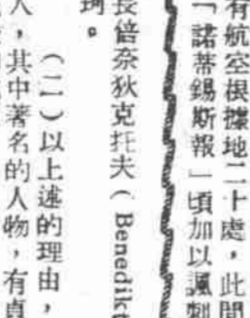 有航空根據地二十處，此間
「諾蒂錫斯報」頃加以諷刺
長倍奈狄克托夫（Benedikt
珂。
（二）以上述的理由，
人，其中著名的人物，有貞